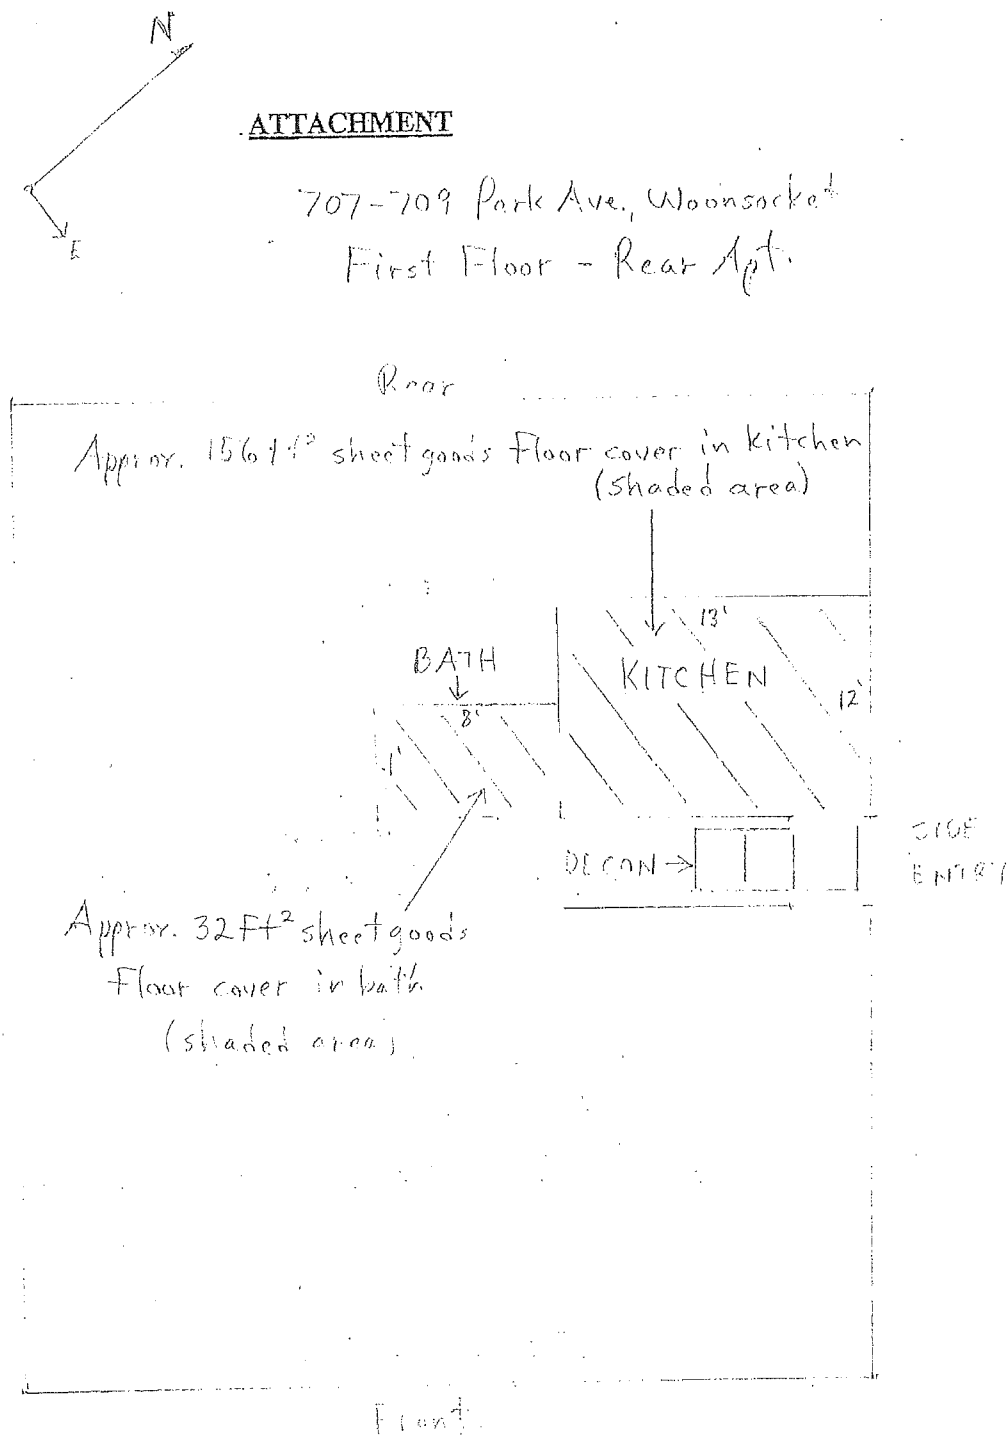 N
ATTACHMENT
707-709 Park Ave., Woonsocket
E
First Floor - Rear Apt.
Rear
Approx. 156 ft² sheet goods Floor cover in kitchen
(shaded area)
13'
BATH
KITCHEN
12'
8'
DECON
SIDE
ENTRY
Approx. 32 Ft² sheet goods
Floor cover in bath
(shaded area)
Front